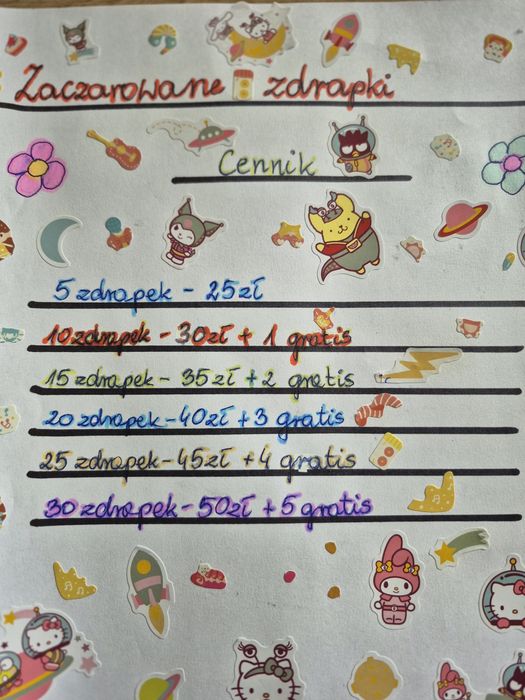 Zaczarowane zdrapki
Cennik
5 zdrapek - 25zł
10 zdrapek - 30zł + 1 gratis
15 zdrapek - 35zł + 2 gratis
20 zdrapek - 40zł + 3 gratis
25 zdrapek - 45zł + 4 gratis
30 zdrapek - 50zł + 5 gratis